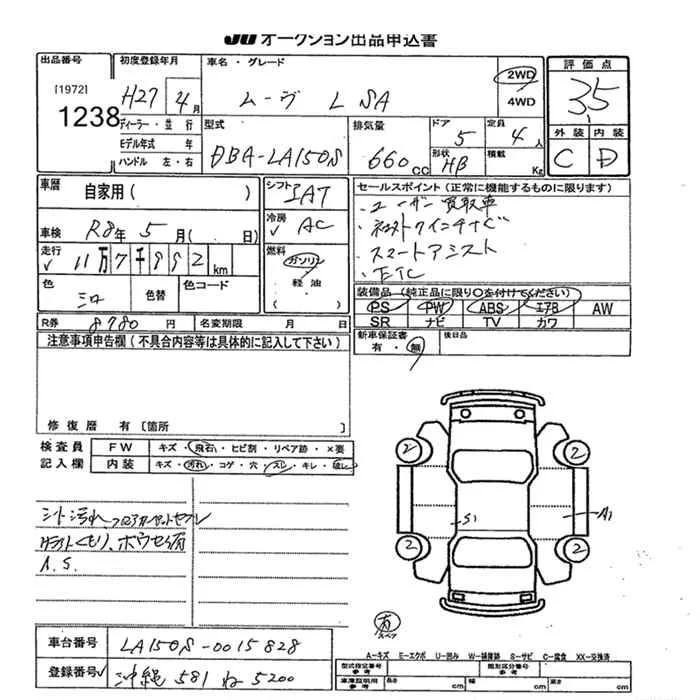 JU オークション出品申込書
出品番号
[1972]
1238
初度登録年月
H27 4月
車名・グレード
ムーヴ L SA
2WD
4WD
評価点
3.5
外装 内装
C D
ディーラー・並行
モデル年式 年
ハンドル 左・右
型式
DBA-LA150S
排気量
660cc
ドア
5
形状
HB
定員
4人
積載
Kg
車歴
自家用( )
車検
R8年5月( 日)
走行
11万7千992km
色
シロ
色替
色コード
シフト
IAT
冷房
AC
燃料
ガソリン
軽油
セールスポイント(正常に機能するものに限ります)
・ユーザー買取車
・スマートアシスト
・ETC
装備品(純正品に限り○を付けてください)
PS PW ABS エアB AW
SR ナビ TV カワ
R券 8780円 名変期限 月 日
新車保証書
有・無
後日品
注意事項申告欄(不具合内容等は具体的に記入して下さい)
修復歴 有[箇所 ]
検査員
記入欄
FW キズ・飛石・ヒビ割・リペア跡・×要
内装 キズ・汚れ・コゲ・穴・スレ・キレ・
シート汚れ、
ライトくもり、
A.S.
2
2
2
2
S1
A1
有
スペア
A-キズ E-エクボ U-凹み W-補修跡 S-サビ C-腐食 XX-交換済
車台番号
LA150S-0015828
登録番号
沖縄 581 ね 5200
型式指定番号
参考
類別区分番号
参考
車庫証明用
参考
長さ cm
幅 cm
高さ cm